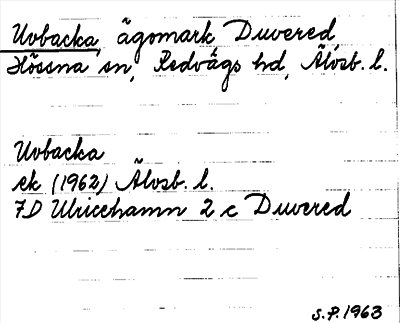 Uvbacka, ägomark Duvered,
Hössna sn, Redvägs hd, Älvsb. l.
Uvbacka
ek (1962) Älvsb. l.
7D Ulricehamn 2 c Duvered
S.P. 1963